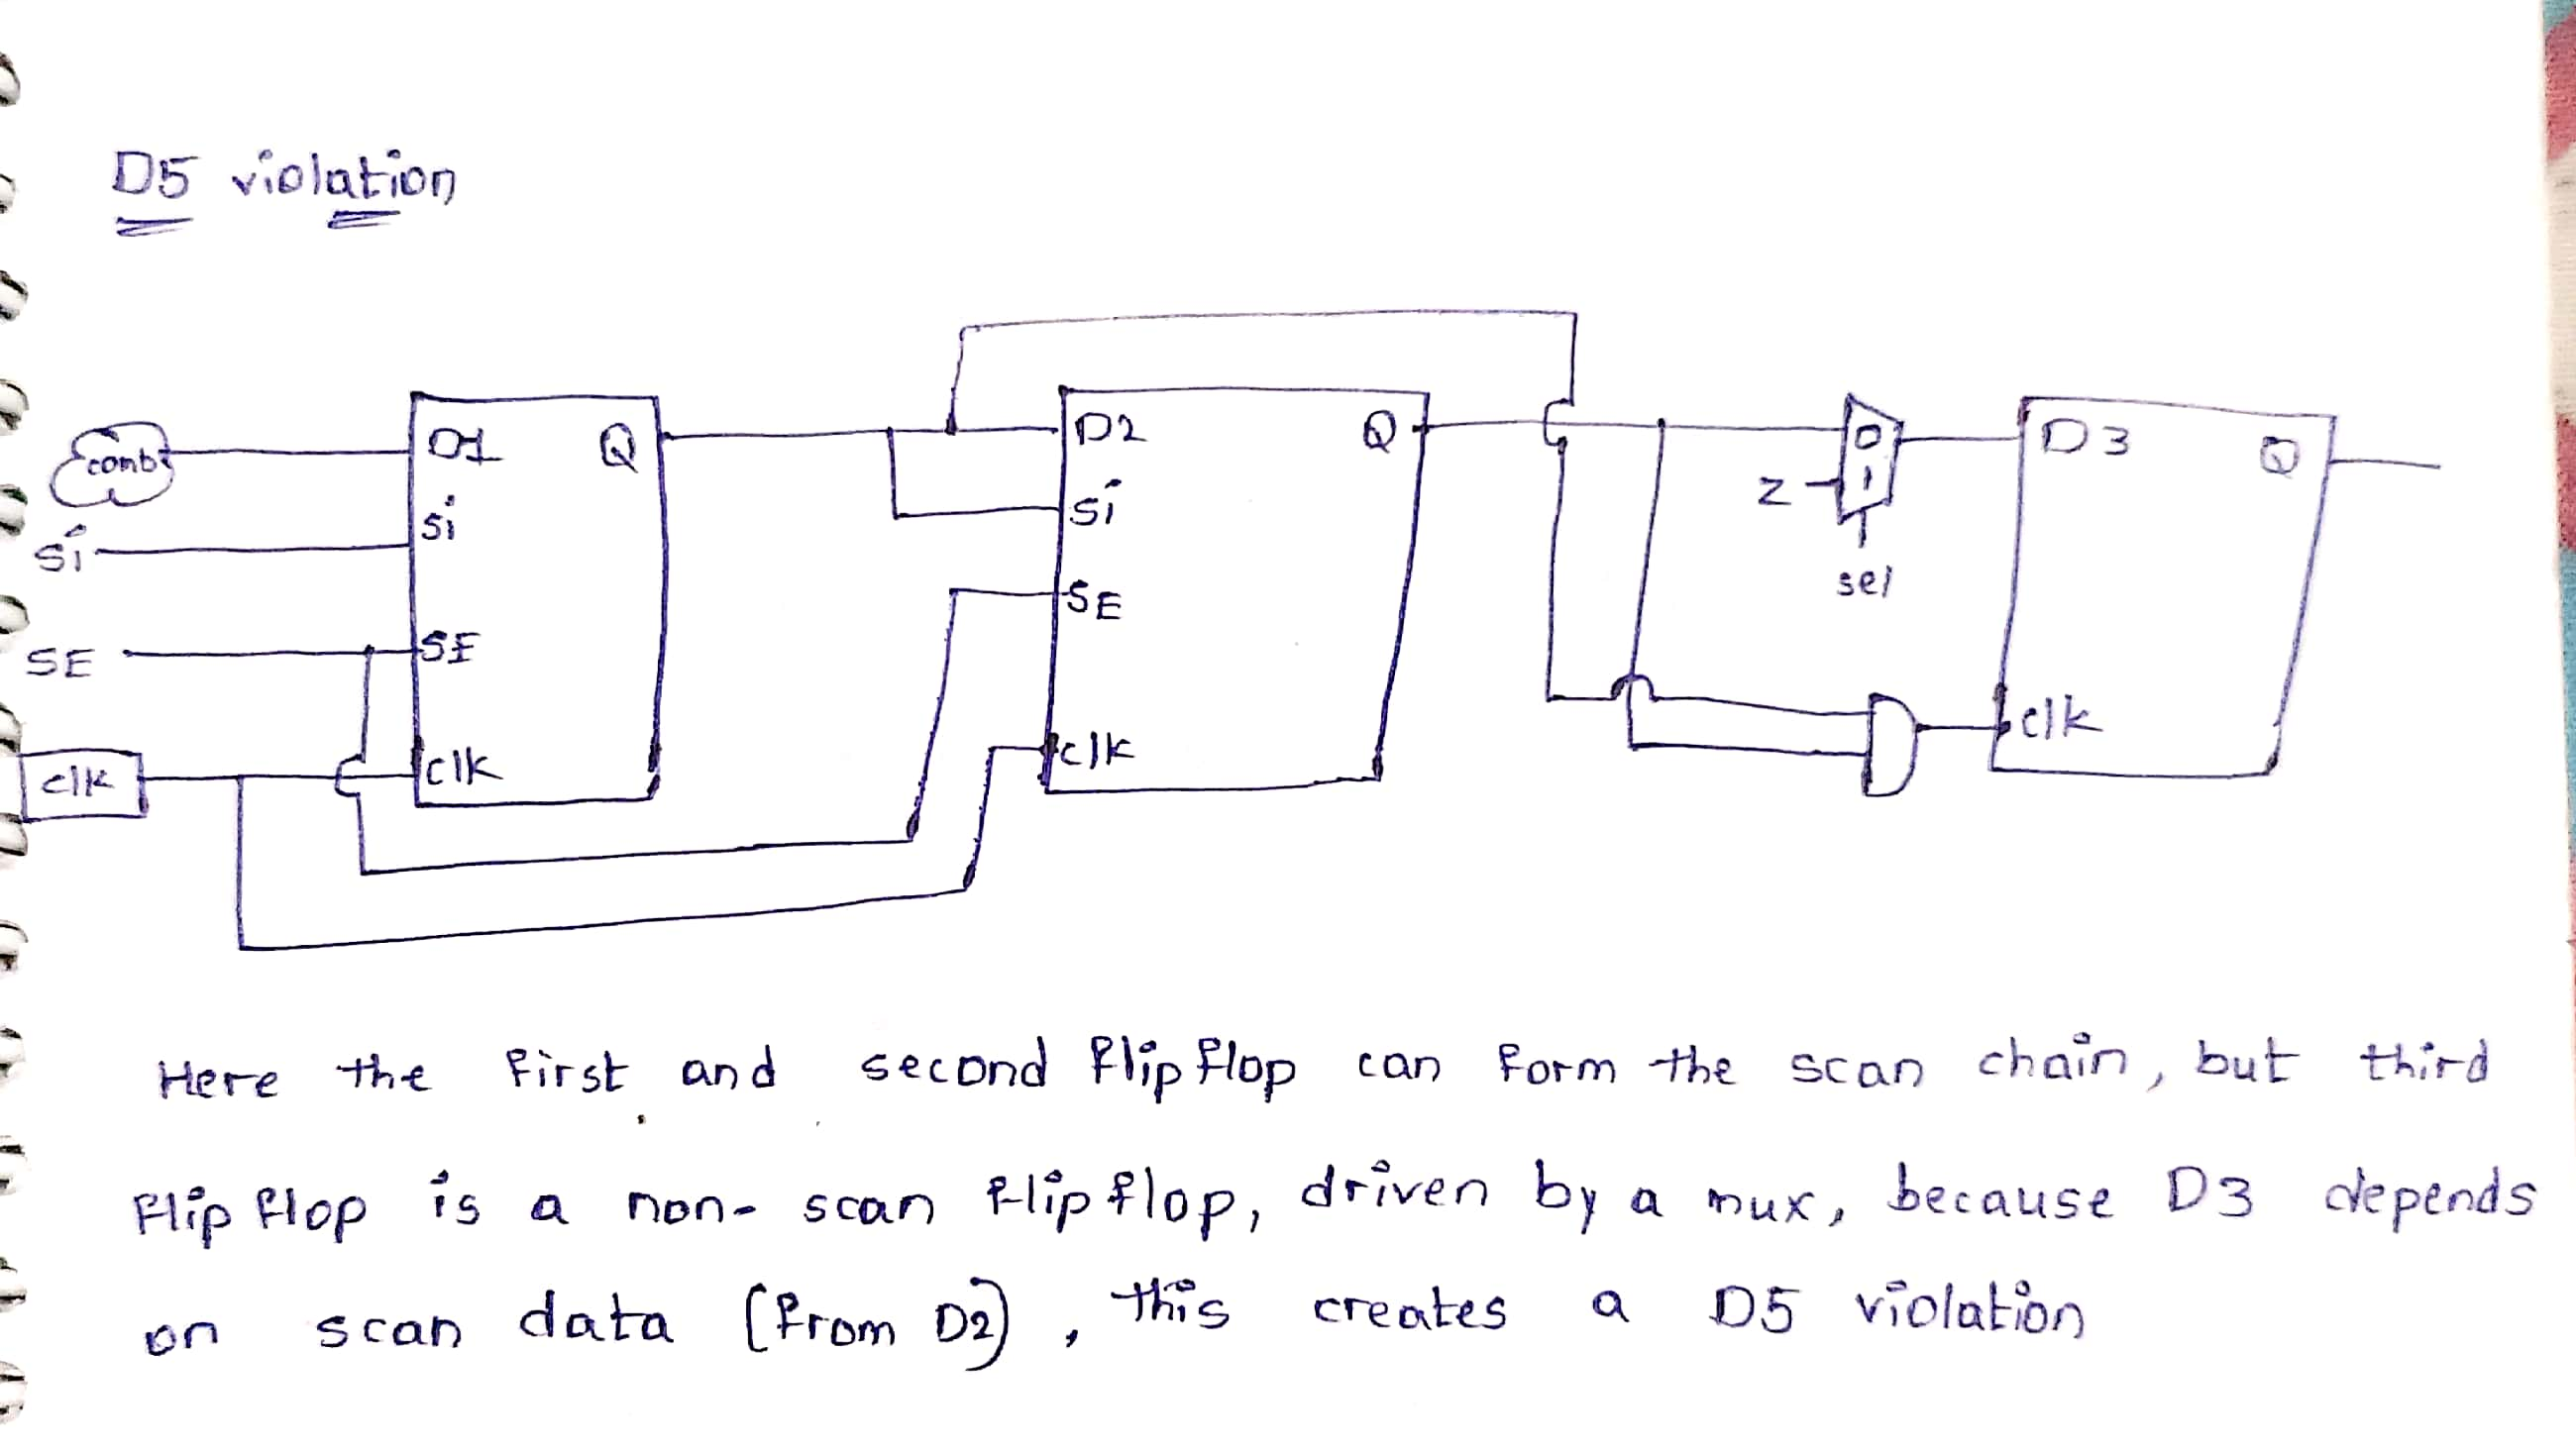 D5 violation
comb
Si
SE
clk
D1 Q
Si
SE
clk
D2 Q
Si
SE
clk
0
1
Z
sel
D3 Q
clk
Here the first and second flip flop can form the scan chain, but third
flip flop is a non- scan flip flop, driven by a mux, because D3 depends
on scan data (from D2), this creates a D5 violation